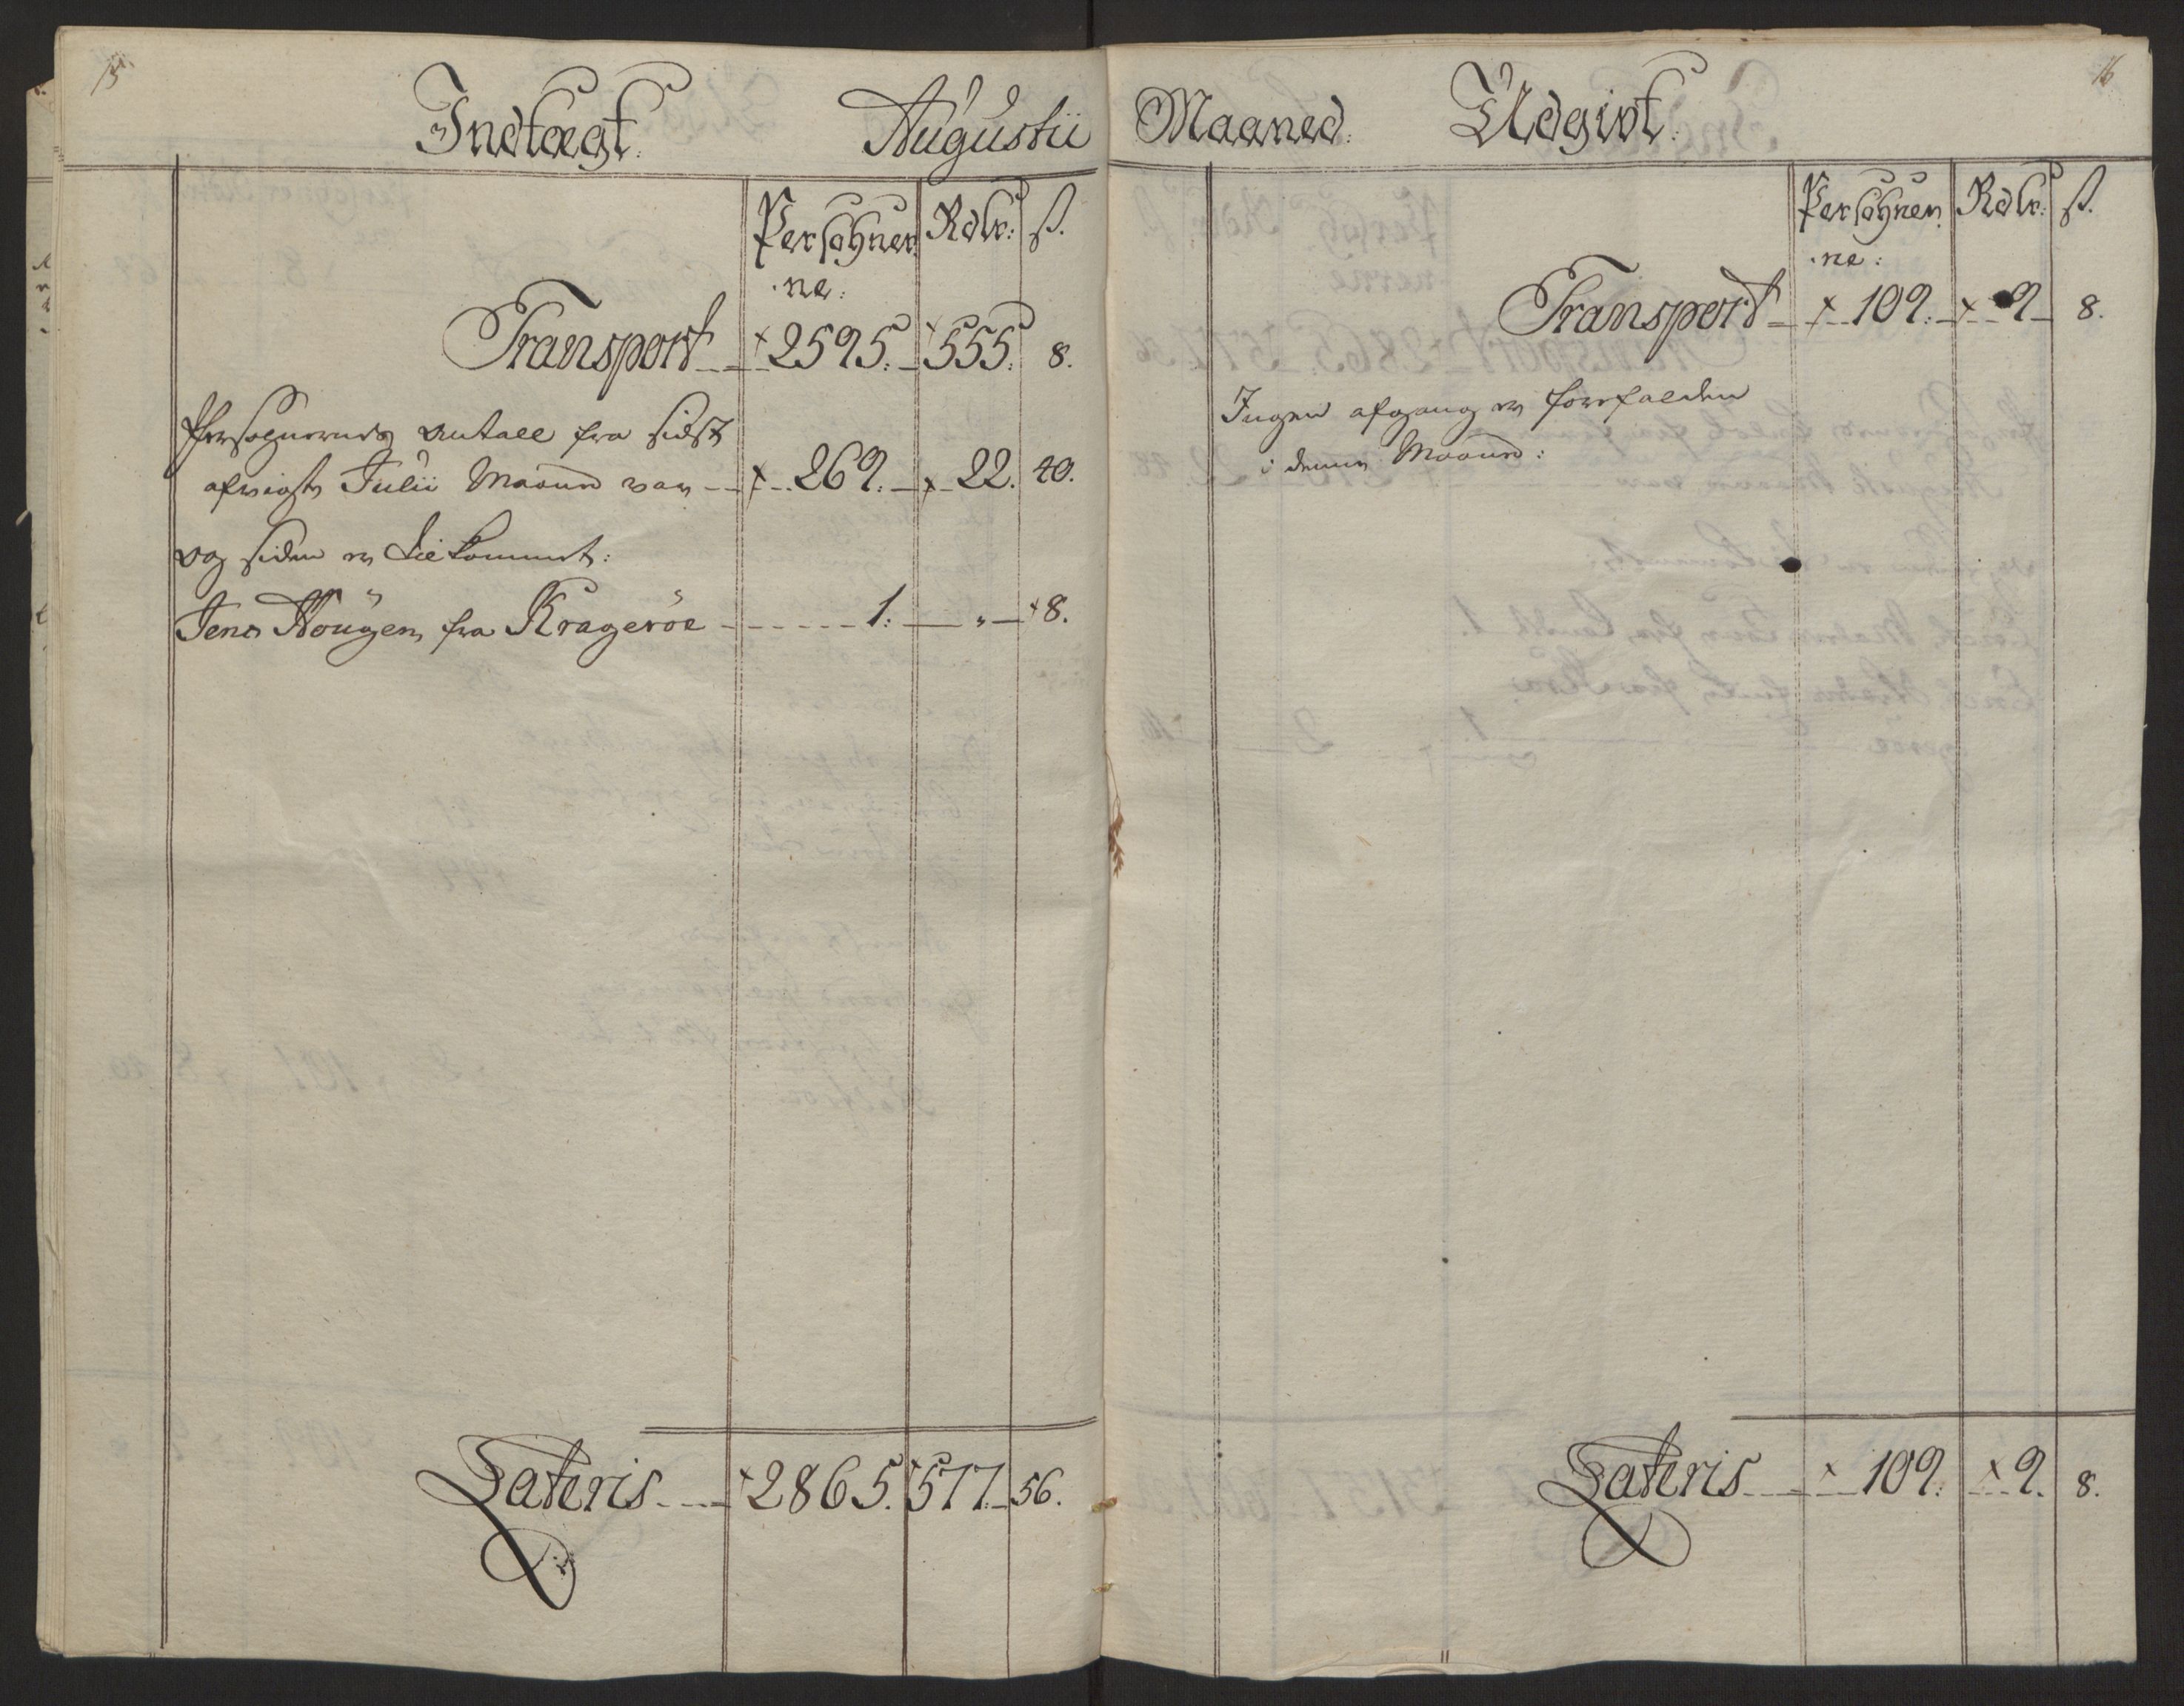 15.
Indtægt. Augustii
Persohner Rdlr: ß.
ne:
Transport × 2595. × 555. 8.
Persohnernes Antall fra sidst
afvigte Julii Maaned var × 269. × 22. 40.
og siden er tilkommet:
Jens Hougen fra Krageröe 1. " × 8.
Lateris × 2865. × 577. 56.
16
Maaned. Udgivt.
Persohner Rdlr: ß.
ne:
Transport × 109. × 9 8.
Ingen afgang er forefalden
i denne Maaned:
Lateris × 109. × 9. 8.